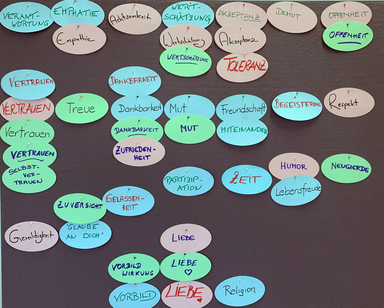 VERANT-
WORTUNG
EMPATHIE
Achtsamkeit
WERT-
SCHÄTZUNG
AKZEPTANZ
DEMUT
OFFENHEIT
Empathie
Wertschätzung
Akzeptanz
OFFENHEIT
WERTSCHÄTZUNG
TOLERANZ
VERTRAUEN
DANKBARKEIT
VERTRAUEN
Treue
Dankbarkeit
Mut
Freundschaft
BEGEISTERUNG
Respekt
Vertrauen
DANKBARKEIT
MUT
MITEINANDER
VERTRAUEN
ZUFRIEDEN-
HEIT
SELBST-
VER-
TRAUEN
PARTIZIP-
ATION
ZEIT
HUMOR
NEUGIERDE
Lebensfreude
ZUVERSICHT
GELASSEN-
HEIT
Gerechtigkeit
'GLAUBE
AN DICH'
LIEBE
VORBILD
WIRKUNG
LIEBE
VORBILD
LIEBE
Religion